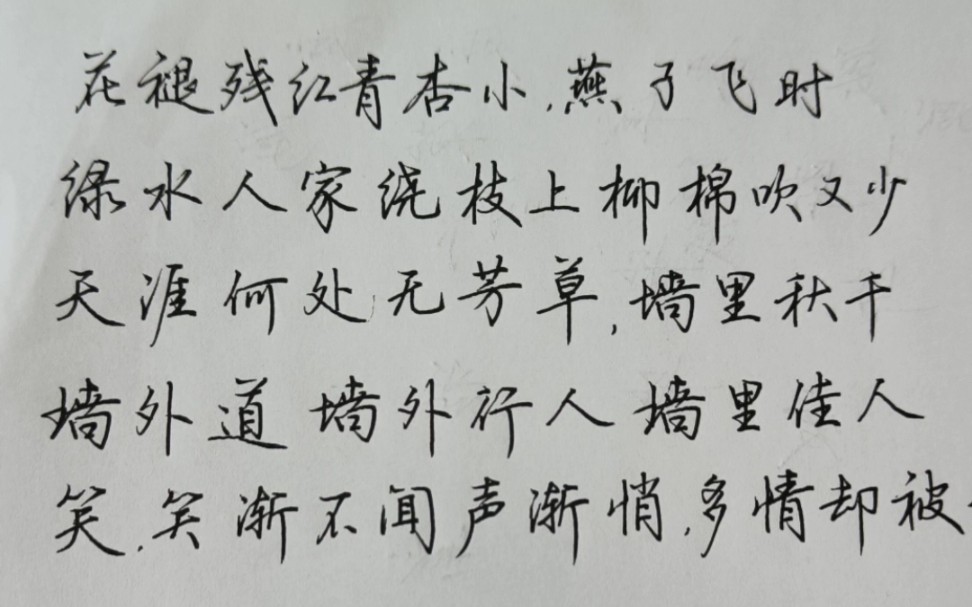 花褪残红青杏小,燕子飞时
绿水人家绕枝上柳棉吹又少
天涯何处无芳草,墙里秋千
墙外道 墙外行人 墙里佳人
笑,笑渐不闻声渐悄,多情却被